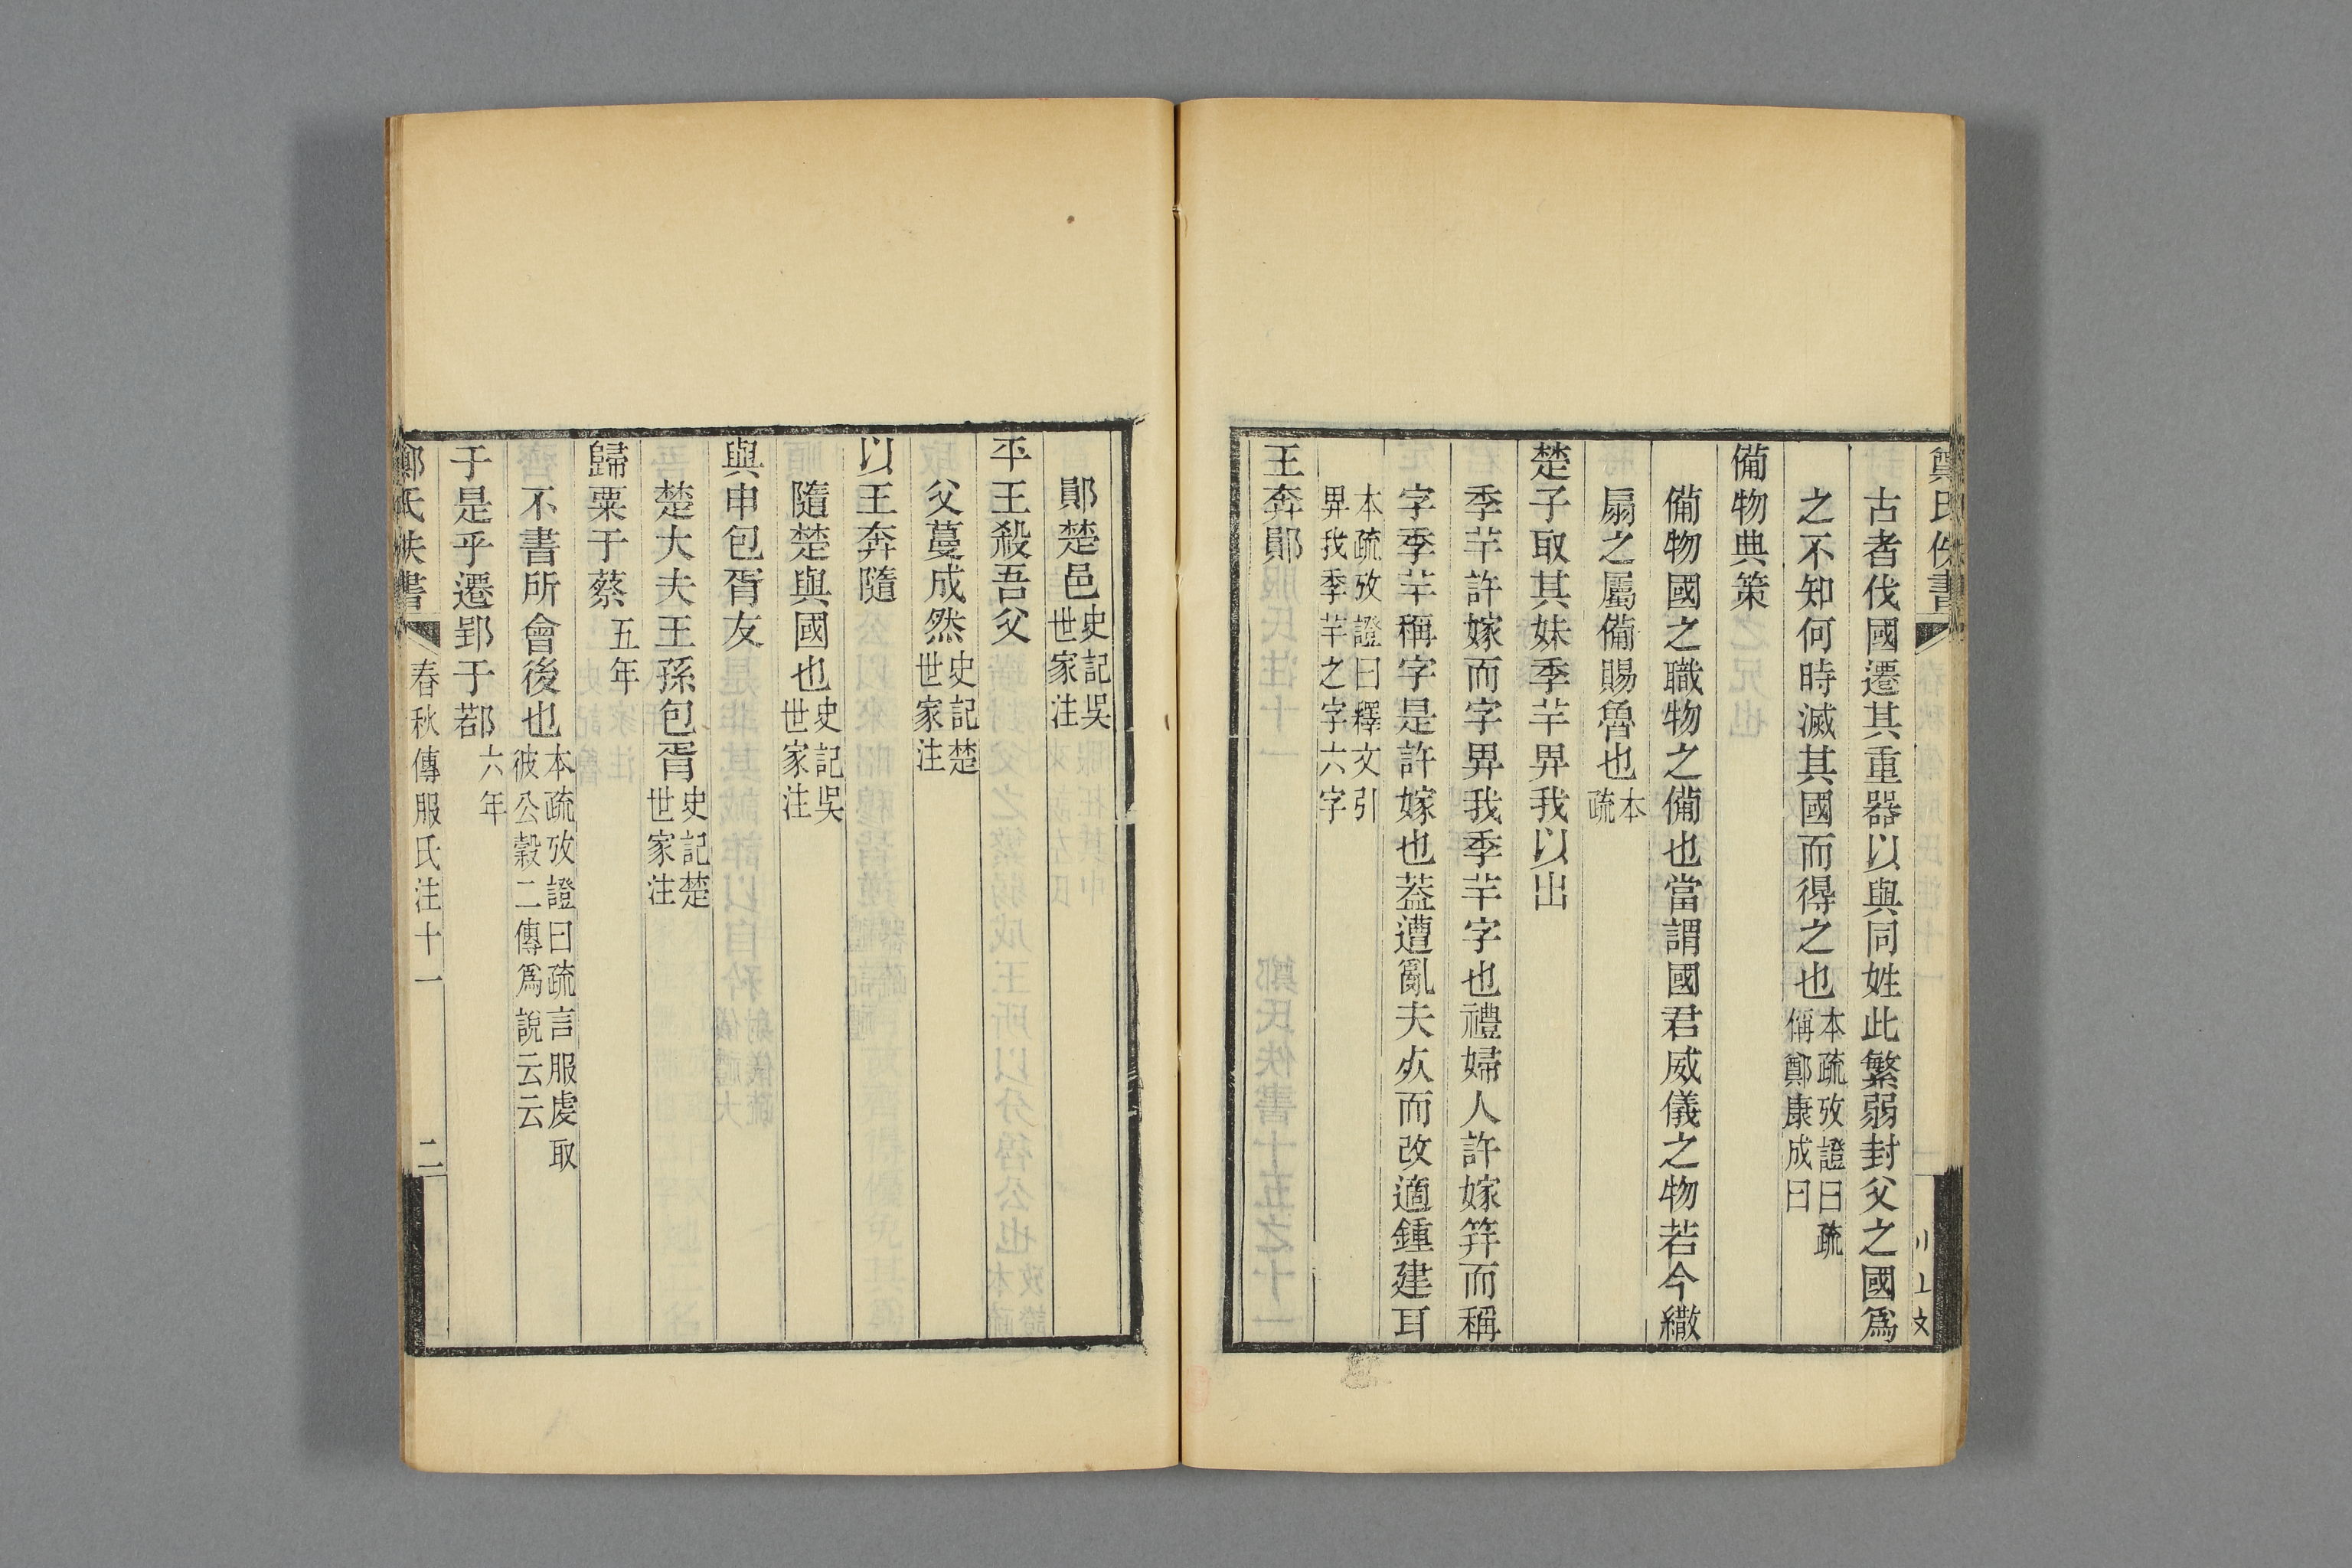 古者伐國遷其重器以與同姓此繁弱封父之國爲
之不知何時滅其國而得之也本疏攷證曰疏偁鄭康成曰
備物典策
備物國之職物之備也當謂國君威儀之物若今繖
扇之屬備賜魯也本疏
楚子取其妹季羋畀我以出
季羋許嫁而字畀我季羋字也禮婦人許嫁筓而稱
字季羋稱字是許嫁也葢遭亂夫死而改適鍾建耳
本疏攷證曰釋文引畀我季羋之字六字
王奔鄖
鄖楚邑史記吳世家注
平王殺吾父
父蔓成然史記楚世家注
以王奔隨
隨楚與國也史記吳世家注
與申包胥友
楚大夫王孫包胥史記楚世家注
歸粟于蔡五年
不書所會後也本疏攷證曰疏言服虔取彼公穀二傳爲說云云
于是乎遷郢于鄀六年
鄭氏佚書 春秋傳服氏注十一 二